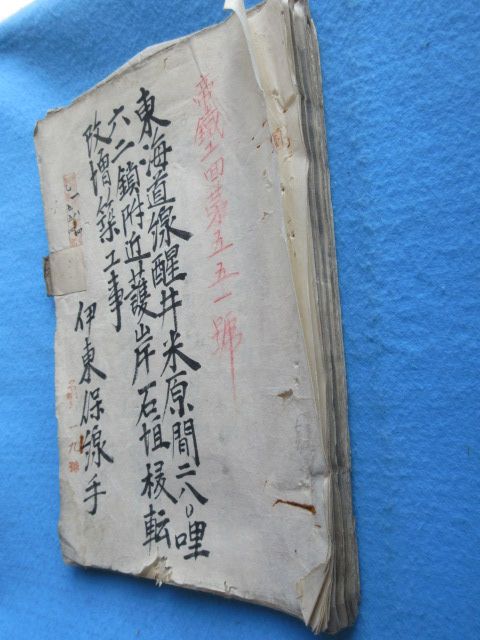 鐵 第五五一號
東海道線醒井米原間二八〇哩
六二鎖附近護岸石垣 転
改増築工事
伊東保線手
一九號